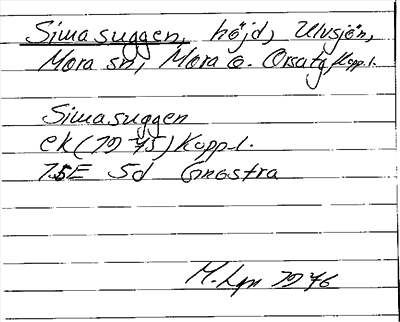 Simasuggen, höjd, Ulvsjön,
Mora sn, Mora o. Orsa tg, Kopp.l.
Simasuggen
ek (1975) Kopp.l.
15E 5d Gnastra
M. Lgn 1976